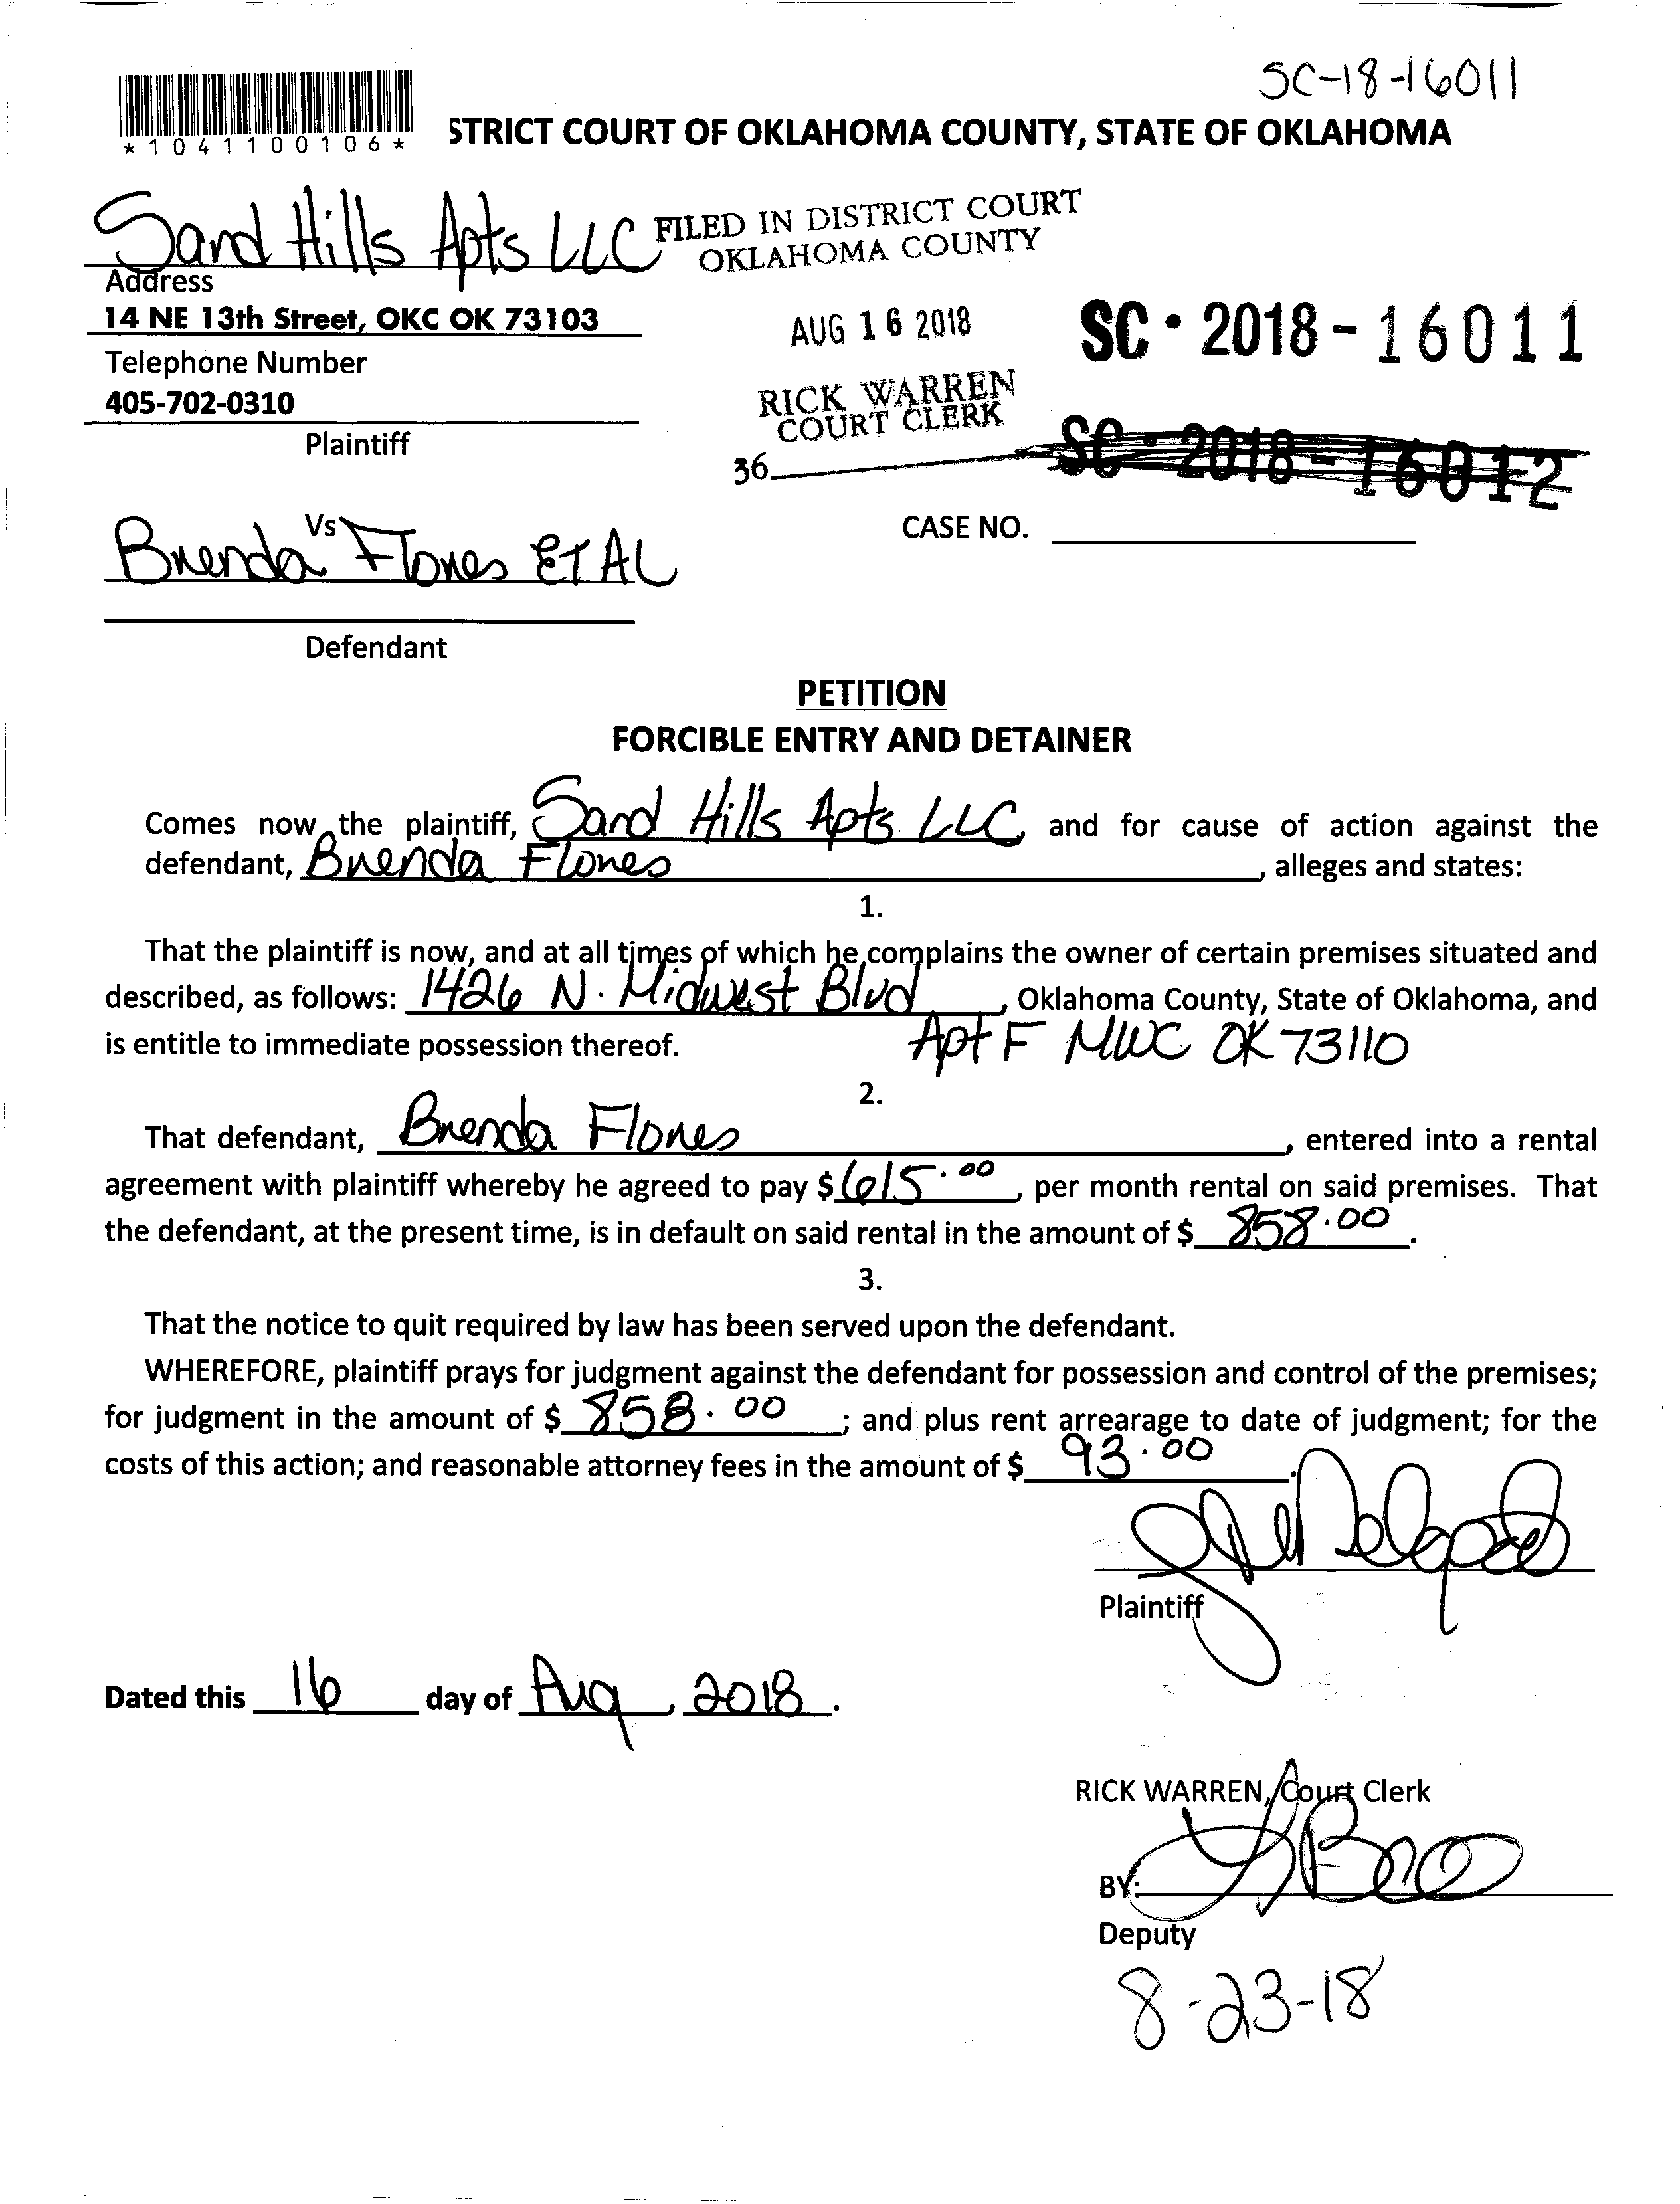 SC-18-16011
*1041100106*
STRICT COURT OF OKLAHOMA COUNTY, STATE OF OKLAHOMA
Sand Hills Apts LLC
FILED IN DISTRICT COURT
OKLAHOMA COUNTY
Address
14 NE 13th Street, OKC OK 73103
AUG 16 2018
SC • 2018 - 16011
Telephone Number
405-702-0310
RICK WARREN
COURT CLERK
Plaintiff
36
SC • 2018 - 16012
Vs
Brenda Flores ET AL
CASE NO.
Defendant
PETITION
FORCIBLE ENTRY AND DETAINER
Comes now the plaintiff, Sand Hills Apts LLC, and for cause of action against the
defendant, Brenda Flores, alleges and states:
1.
That the plaintiff is now, and at all times of which he complains the owner of certain premises situated and
described, as follows: 1426 N. Midwest Blvd, Oklahoma County, State of Oklahoma, and
is entitle to immediate possession thereof. Apt F MWC OK 73110
2.
That defendant, Brenda Flores, entered into a rental
agreement with plaintiff whereby he agreed to pay $615.00, per month rental on said premises. That
the defendant, at the present time, is in default on said rental in the amount of $ 858.00.
3.
That the notice to quit required by law has been served upon the defendant.
WHEREFORE, plaintiff prays for judgment against the defendant for possession and control of the premises;
for judgment in the amount of $ 858.00; and plus rent arrearage to date of judgment; for the
costs of this action; and reasonable attorney fees in the amount of $ 93.00.
Plaintiff
Dated this 16 day of Aug, 2018.
RICK WARREN, Court Clerk
BY:
Deputy
8-23-18